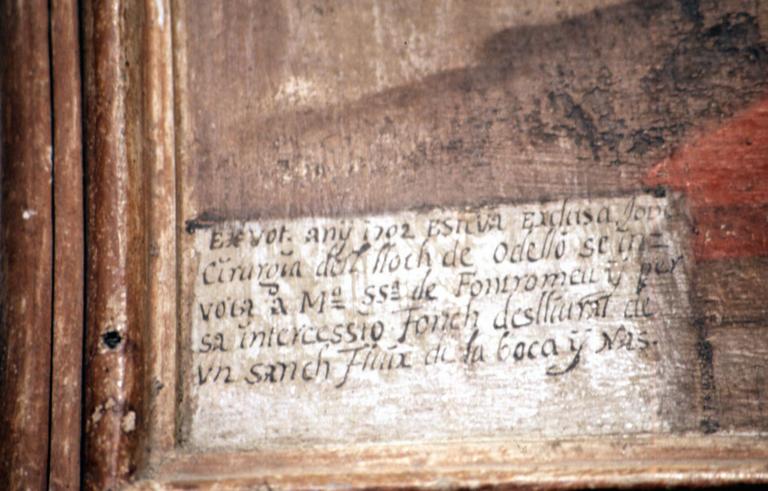 Ex vot. any 1702 Esteva Exclusa Jove
Cirurgia del lloch de Odelló se in=
vocà à Mª SSª de Fontromeu ÿ per
sa intercessio fonch deslliurat de
vn sanch fluix de la boca ÿ Nas.